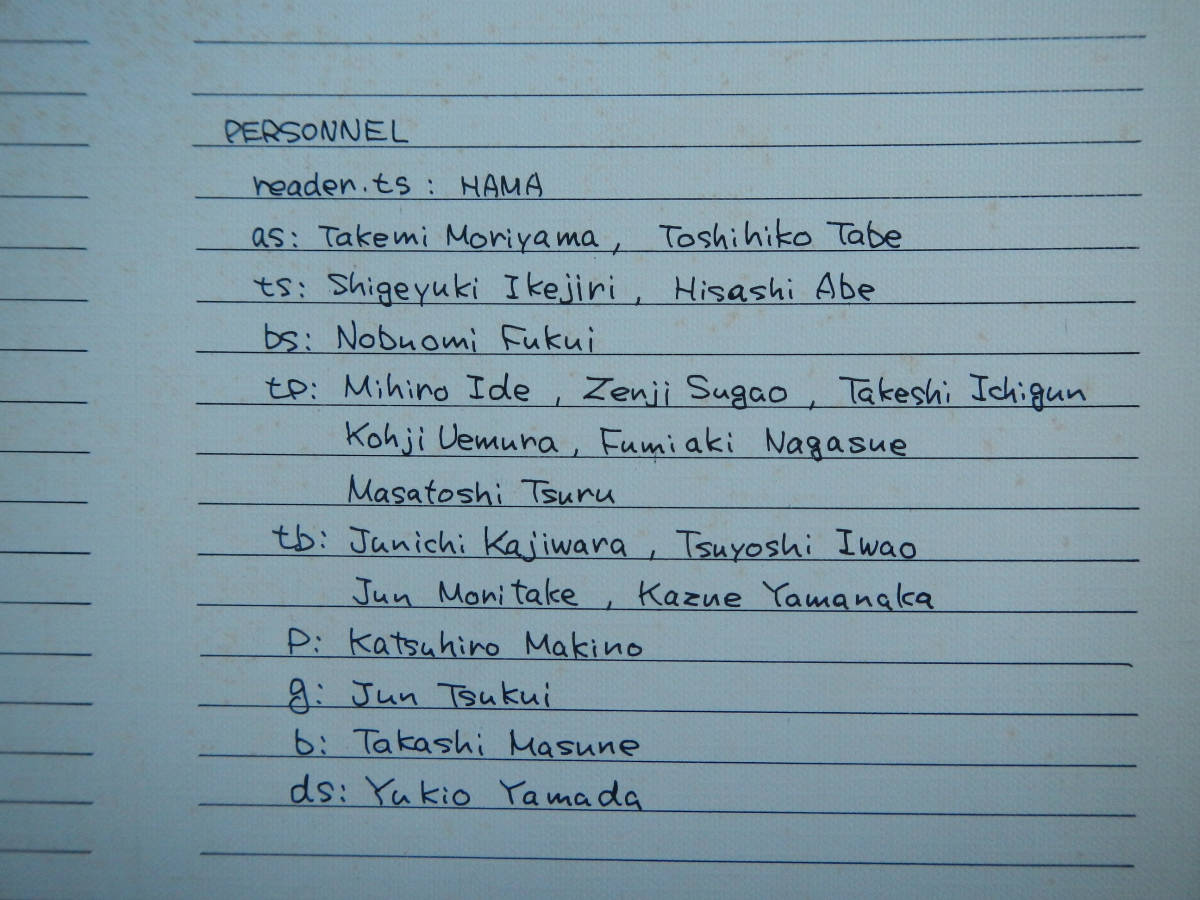 PERSONNEL
reader.ts : HAMA
as: Takemi Moriyama, Toshihiko Tabe
ts: Shigeyuki Ikejiri, Hisashi Abe
bs: Nobuomi Fukui
tp: Mihiro Ide, Zenji Sugao, Takeshi Ichigun
Kohji Uemura, Fumiaki Nagasue
Masatoshi Tsuru
tb: Junichi Kajiwara, Tsuyoshi Iwao
Jun Moritake, Kazue Yamanaka
p: Katsuhiro Makino
g: Jun Tsukui
b: Takashi Masune
ds: Yukio Yamada